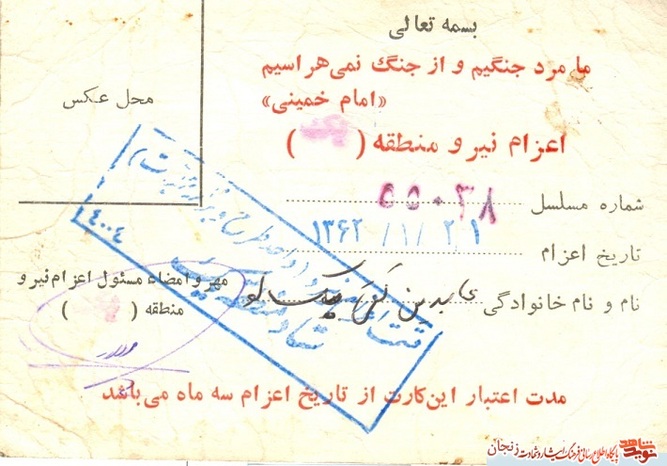 بسمه تعالی
ما مرد جنگیم و از جنگ نمی‌هراسیم
«امام خمینی»
محل عکس
اعزام نیرو منطقه ( یک )
شماره مسلسل ۵۵۰۳۸
تاریخ اعزام ۱۳۶۲/۱/۲۱
نام و نام خانوادگی عابدین
مهر و امضاء مسئول اعزام نیرو
منطقه ( )
۴۰۰۴
مدت اعتبار این کارت از تاریخ اعزام سه ماه می‌باشد
نوید شاهد
پایگاه اطلاع رسانی فرهنگ ایثار و شهادت زنجان